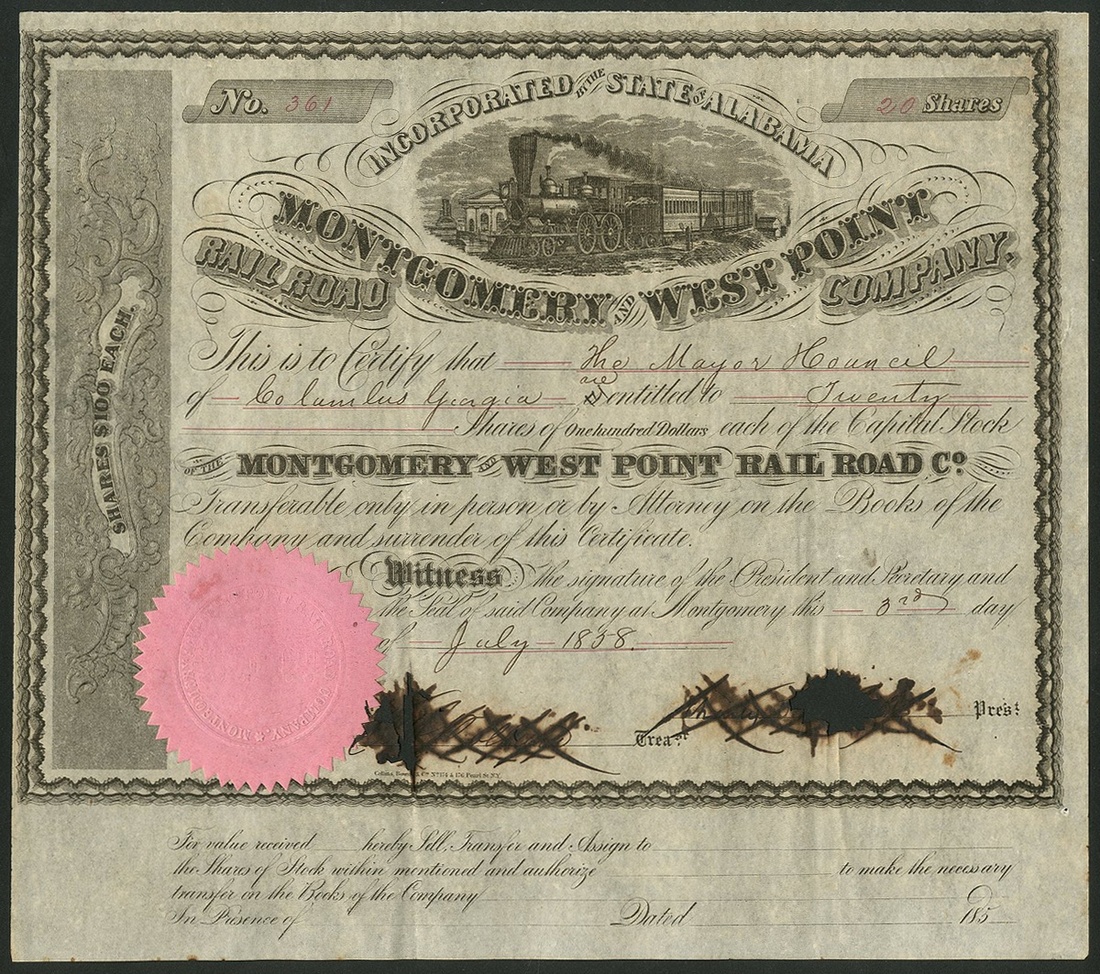 No. 361
20 Shares
INCORPORATED BY THE STATE OF ALABAMA
MONTGOMERY AND WEST POINT
RAIL ROAD COMPANY.
SHARES $100 EACH.
This is to Certify that The Mayor & Council
of Columbus Georgia are entitled to Twenty
Shares of One hundred Dollars each of the Capital Stock
OF THE MONTGOMERY AND WEST POINT RAIL ROAD Co.
Transferable only in person or by Attorney on the Books of the
Company and surrender of this Certificate.
Witness the signature of the President and Secretary and
the Seal of said Company at Montgomery this 3rd day
of July 1858.
Treasr
Prest
& Co. No. 174 & 176 Pearl St. N.Y.
For value received hereby Sell, Transfer and Assign to
the Shares of Stock within mentioned and authorize to make the necessary
transfer on the Books of the Company
In Presence of Dated 185